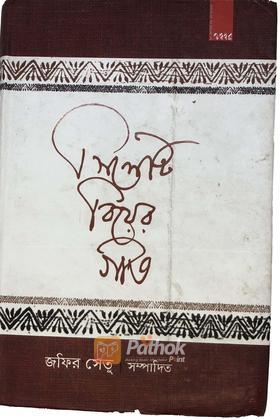 সিলেটি
বিয়ের
গীত
Pathok
Point
জফির সেতু সম্পাদিত